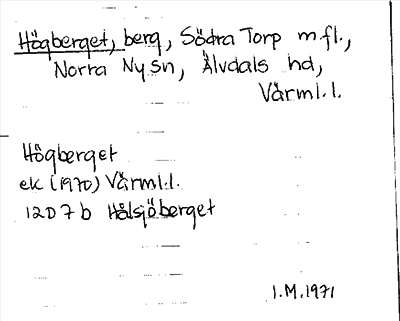 Högberget, berg, Södra Torp m.fl.,
Norra Ny sn, Älvdals hd,
Värml.l.
Högberget
ek (1970) Värml.l.
12D 7b Hålsjöberget
I.M.1971